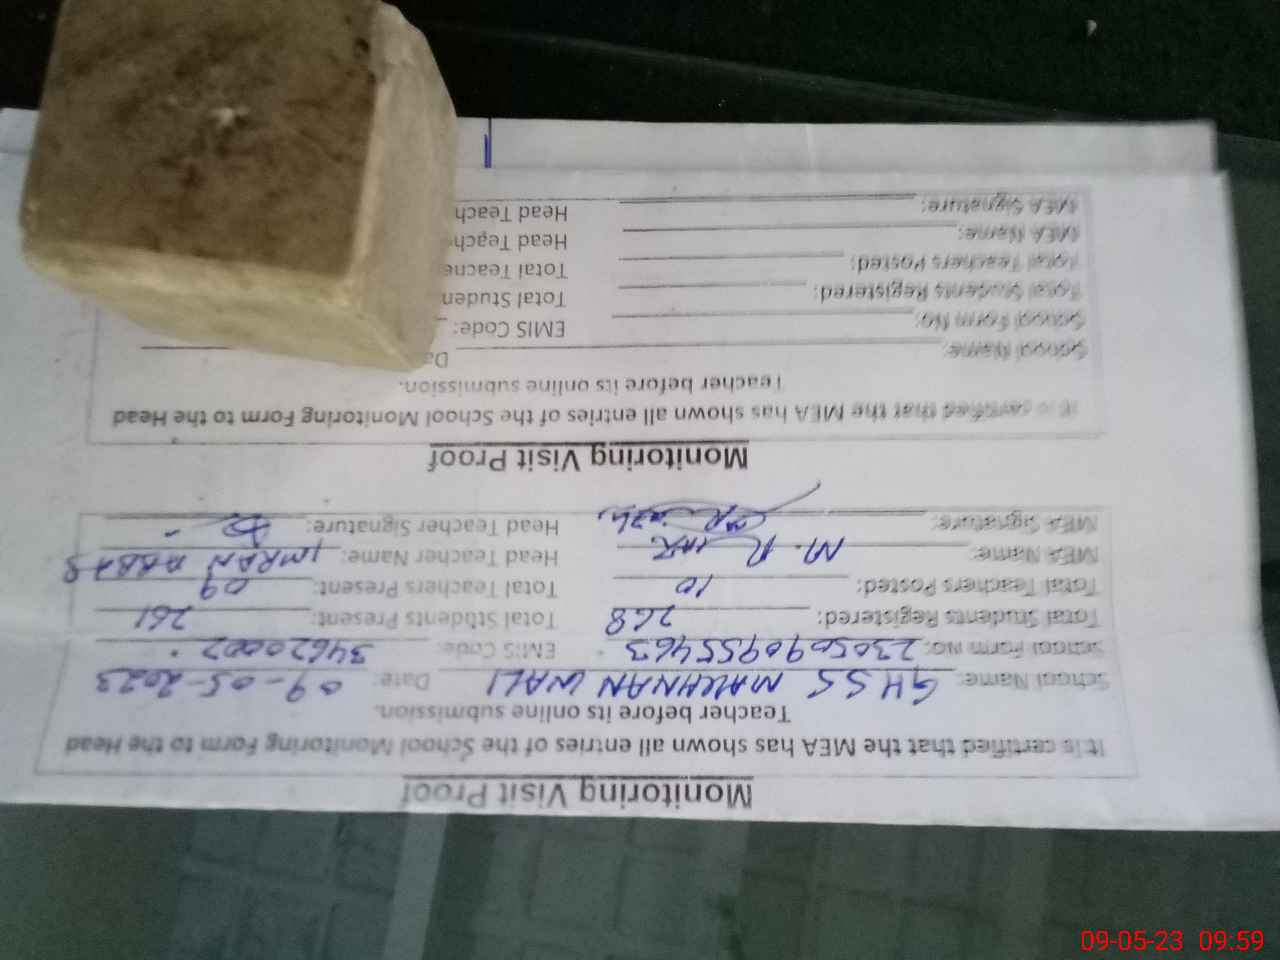 Monitoring Visit Proof
It is certified that the MEA has shown all entries of the School Monitoring Form to the Head
Teacher before its online submission.
School Name: GHSS MAKHNAN WALI Date: 09-05-2023
School Form No: 2305090955463 EMIS Code: 34620007
Total Students Registered: 268 Total Students Present: 261
Total Teachers Posted: 10 Total Teachers Present: 09
MEA Name: M. Riaz Head Teacher Name: IMRAN ABBAS
MEA Signature: Head Teacher Signature:
Monitoring Visit Proof
It is certified that the MEA has shown all entries of the School Monitoring Form to the Head
Teacher before its online submission.
School Name: Da
School Form No: EMIS Code:
Total Students Registered: Total Studen
Total Teachers Posted: Total Teache
MEA Name: Head Teache
MEA Signature: Head Teach
09-05-23 09:59